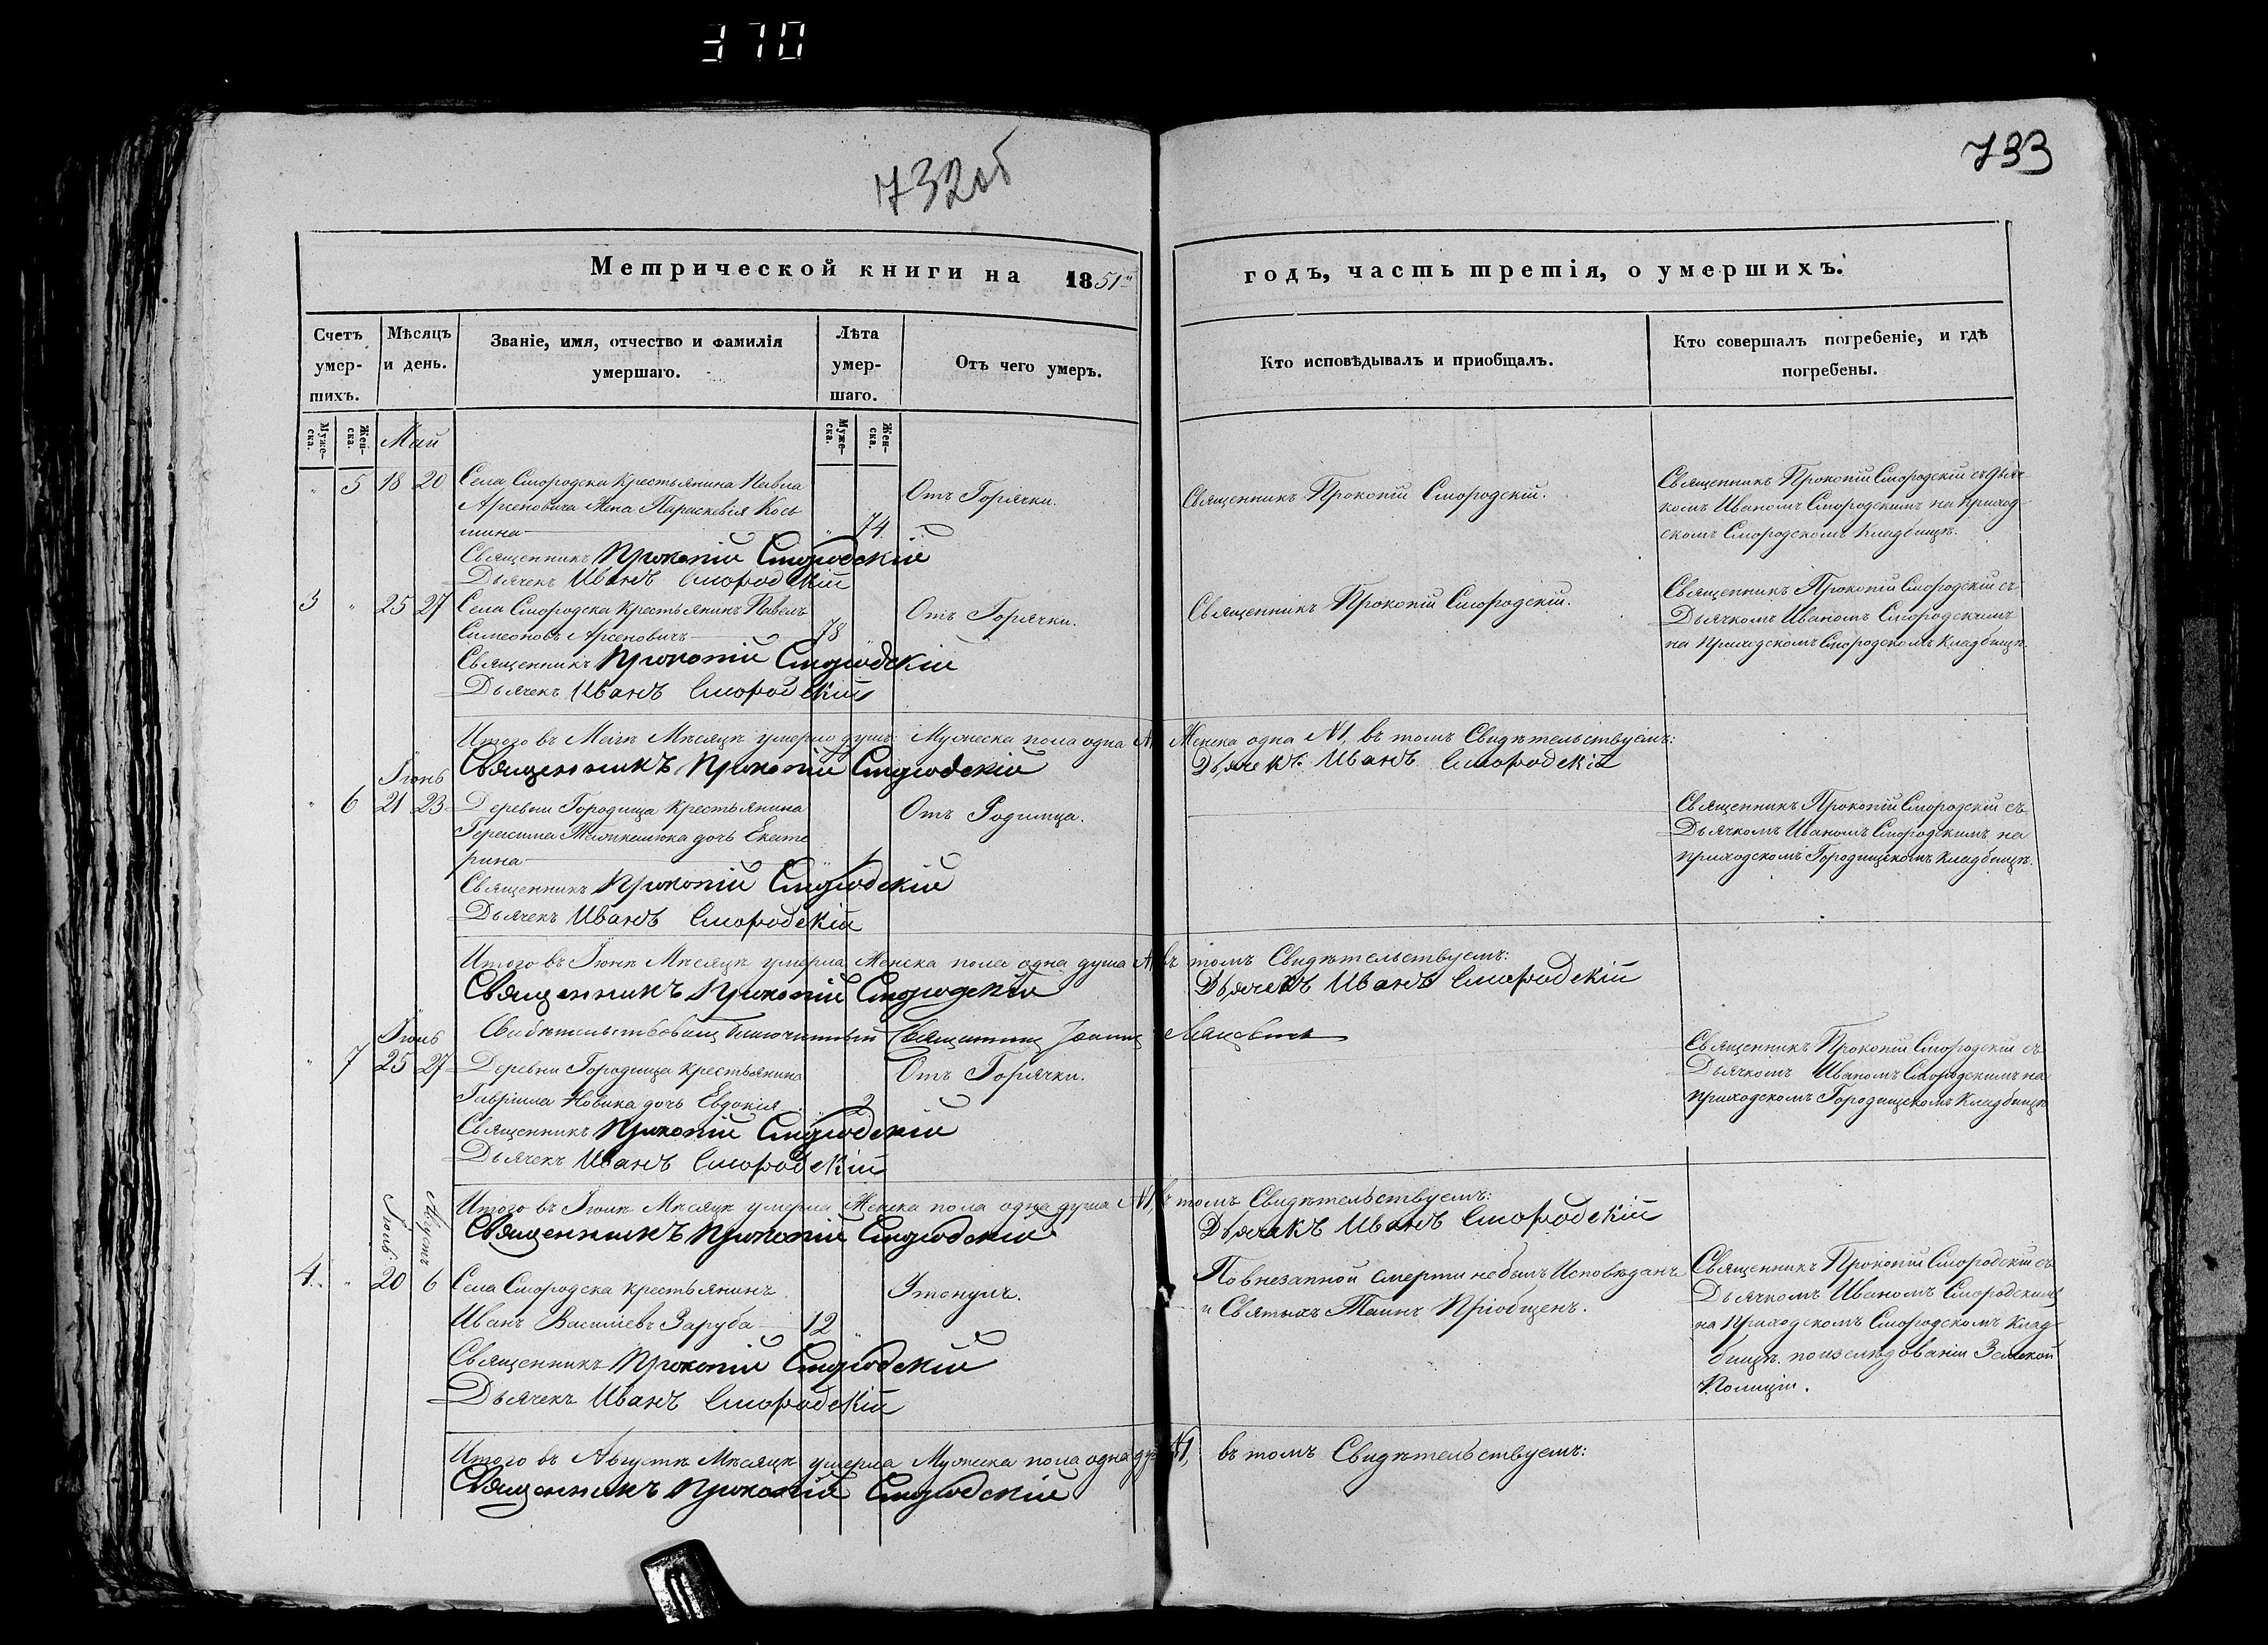 370
732об
733
Метрической книги на 1851й
годъ, часть третія, о умершихъ.
Счетъ умер-шихъ.
Мѣсяцъ и день.
Званіе, имя, отчество и фамилія умершаго.
Лѣта умер-шаго.
Отъ чего умеръ.
Кто исповѣдывалъ и приобщалъ.
Кто совершалъ погребеніе, и гдѣ погребены.
Муже-ска.
Жен-ска.
Муже-ска.
Жен-ска.
Май
" 5 18 20 Села Смородска крестьянина Павла
Арсеновича Жена Параскевія Кось
мина " 74
Отъ Горячки.
Священникъ Прокопій Смородскій.
Священникъ Прокопій Смородскій съ Дьяч
комъ Иваномъ Смородскимъ на Приход
скомъ Смородскомъ Кладбищѣ.
Священникъ Прокопій Смородскій
Дьячекъ Иванъ Смородскій
3 " 25 27 Села Смородска крестьянинъ Павелъ
Симеоновъ Арсеновичъ 78 "
Отъ Горячки.
Священникъ Прокопій Смородскій.
Священникъ Прокопій Смородскій съ
Дьячкомъ Иваномъ Смородскимъ
на Приходскомъ Смородскомъ Кладбищѣ.
Священникъ Прокопій Смородскій
Дьячекъ Иванъ Смородскій
Итого въ Маѣ Мѣсяцѣ умерло душъ: Мужеска пола одна Женска одна №1, въ томъ Свидѣтельствуемъ:
Священникъ Прокопій Смородскій
Дьячекъ Иванъ Смородскій
Іюнь
" 6 21 23 Деревни Городища крестьянина
Герасима дочь Екате
рина " 1
Отъ Родимца.
Священникъ Прокопій Смородскій съ
Дьячкомъ Иваномъ Смородскимъ на
приходскомъ Городищскомъ кладбищѣ.
Священникъ Прокопій Смородскій
Дьячекъ Иванъ Смородскій
Итого въ Іюнѣ Мѣсяцѣ умерла Женска пола одна душа въ томъ Свидѣтельствуемъ:
Священникъ Прокопій Смородскій
Дьячекъ Иванъ Смородскій
Свидѣтельствовалъ благочинный Священникъ Іоаннъ
Іюль
" 7 25 27 Деревни Городища крестьянина
Гавріила Новика дочь Евдокія " 2
Отъ Горячки.
Священникъ Прокопій Смородскій съ
Дьячкомъ Иваномъ Смородскимъ на
приходскомъ Городищскомъ Кладбищѣ
Священникъ Прокопій Смородскій
Дьячекъ Иванъ Смородскій
Итого въ Іюлѣ Мѣсяцѣ умерла Женска пола одна душа №1, въ томъ Свидѣтельствуемъ:
Священникъ Прокопій Смородскій
Дьячекъ Иванъ Смородскій
Іюль
Августъ
4. " 20 6 Села Смородска крестьянинъ
Иванъ Васильевъ Заруба 12 "
Утонулъ.
По внезапной смерти не былъ Исповѣданъ
и Святыхъ Таинъ Пріобщенъ.
Священникъ Прокопій Смородскій съ
Дьячкомъ Иваномъ Смородскимъ
на Приходскомъ Смородскомъ Клад
бищѣ. по изслѣдованіи Земской
Полиціи.
Священникъ Прокопій Смородскій
Дьячекъ Иванъ Смородскій
Итого въ Августѣ Мѣсяцѣ умерла Мужеска пола одна №1, въ томъ Свидѣтельствуемъ:
Священникъ Прокопій Смородскій